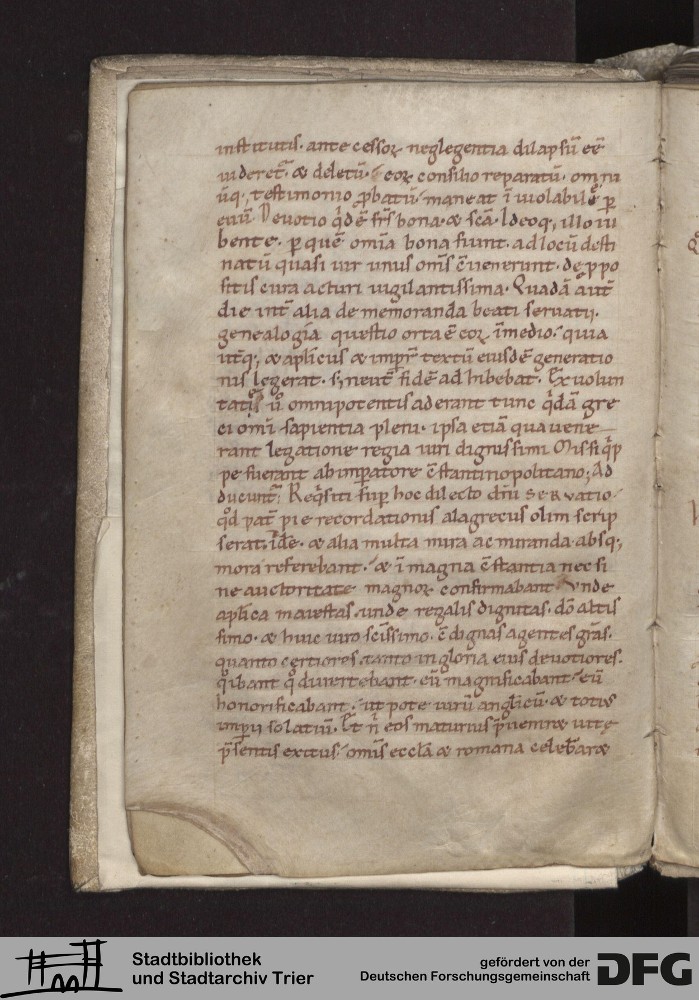 institutis· antecessoꝝ neglegentia dilapsū eē
uideret᷑· & deletū· eoꝝ consilio reparatū· omniū
ūq; testimonio ꝓbatū· maneat īuiolabile ꝑ
euū. Deuotio q̇dē frīs bona· & scā· Ideoq; illo iu
bente· ꝑ quē omīa bona fiunt· ad locū desti
natū quasi uir unus omīs cuenerunt· de ꝓpo
sitis cura acturi uigilantissima. Quadā aūt
die int̄ alia de memoranda beati seruatii·
genealogīa questio orta ē eoꝝ īmedio· quia
ut̄q; & aplīcus & impr̄ textū eiusdē generatio
nis legerat· s; neut᷑ fidē adhibebat. Ex uolun
tatis ů omnipotentis aderant tunc q̇dā gre
ci omī sapientia pleni· ipsa etiā quauene
rant legatione regia uiri dignissimi Missi q̇p
pe fuerant ab imꝑatore c̄stantinopolitano; Ad
ducunt᷑; Req̇siti suꝑ hoc dilecto dn̄i SERVATIO·
q̊d pat᷑ pie recordationis alagrecus olim scrip
serat· idē· & alia multa mira ac miranda· absq;
mora referebant· & ī magna c̄stantia nec si
ne auctoritate magnoꝝ confirmabant· Vnde
aplīca maiestas· unde regalis dignitas· dō altis
simo· & huic uiro scīssimo· c̄dignas agentes grās·
quanto certiores· tanto in gloria eius deuotiores·
q̇ibant q̊ diuertebant· eū magnificabant· eū
honorificabant· ut pote uirū anglicū· & totius
imꝑii solatiū. Et n̄ eos maturius p̄ueniret uite
p̄sentis exitus· omīs eccla & romana celebrare
Stadtbibliothek
und Stadtarchiv Trier
gefördert von der
Deutschen Forschungsgemeinschaft
DFG